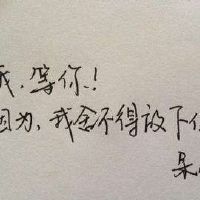 我，等你！
因为，我舍不得放下